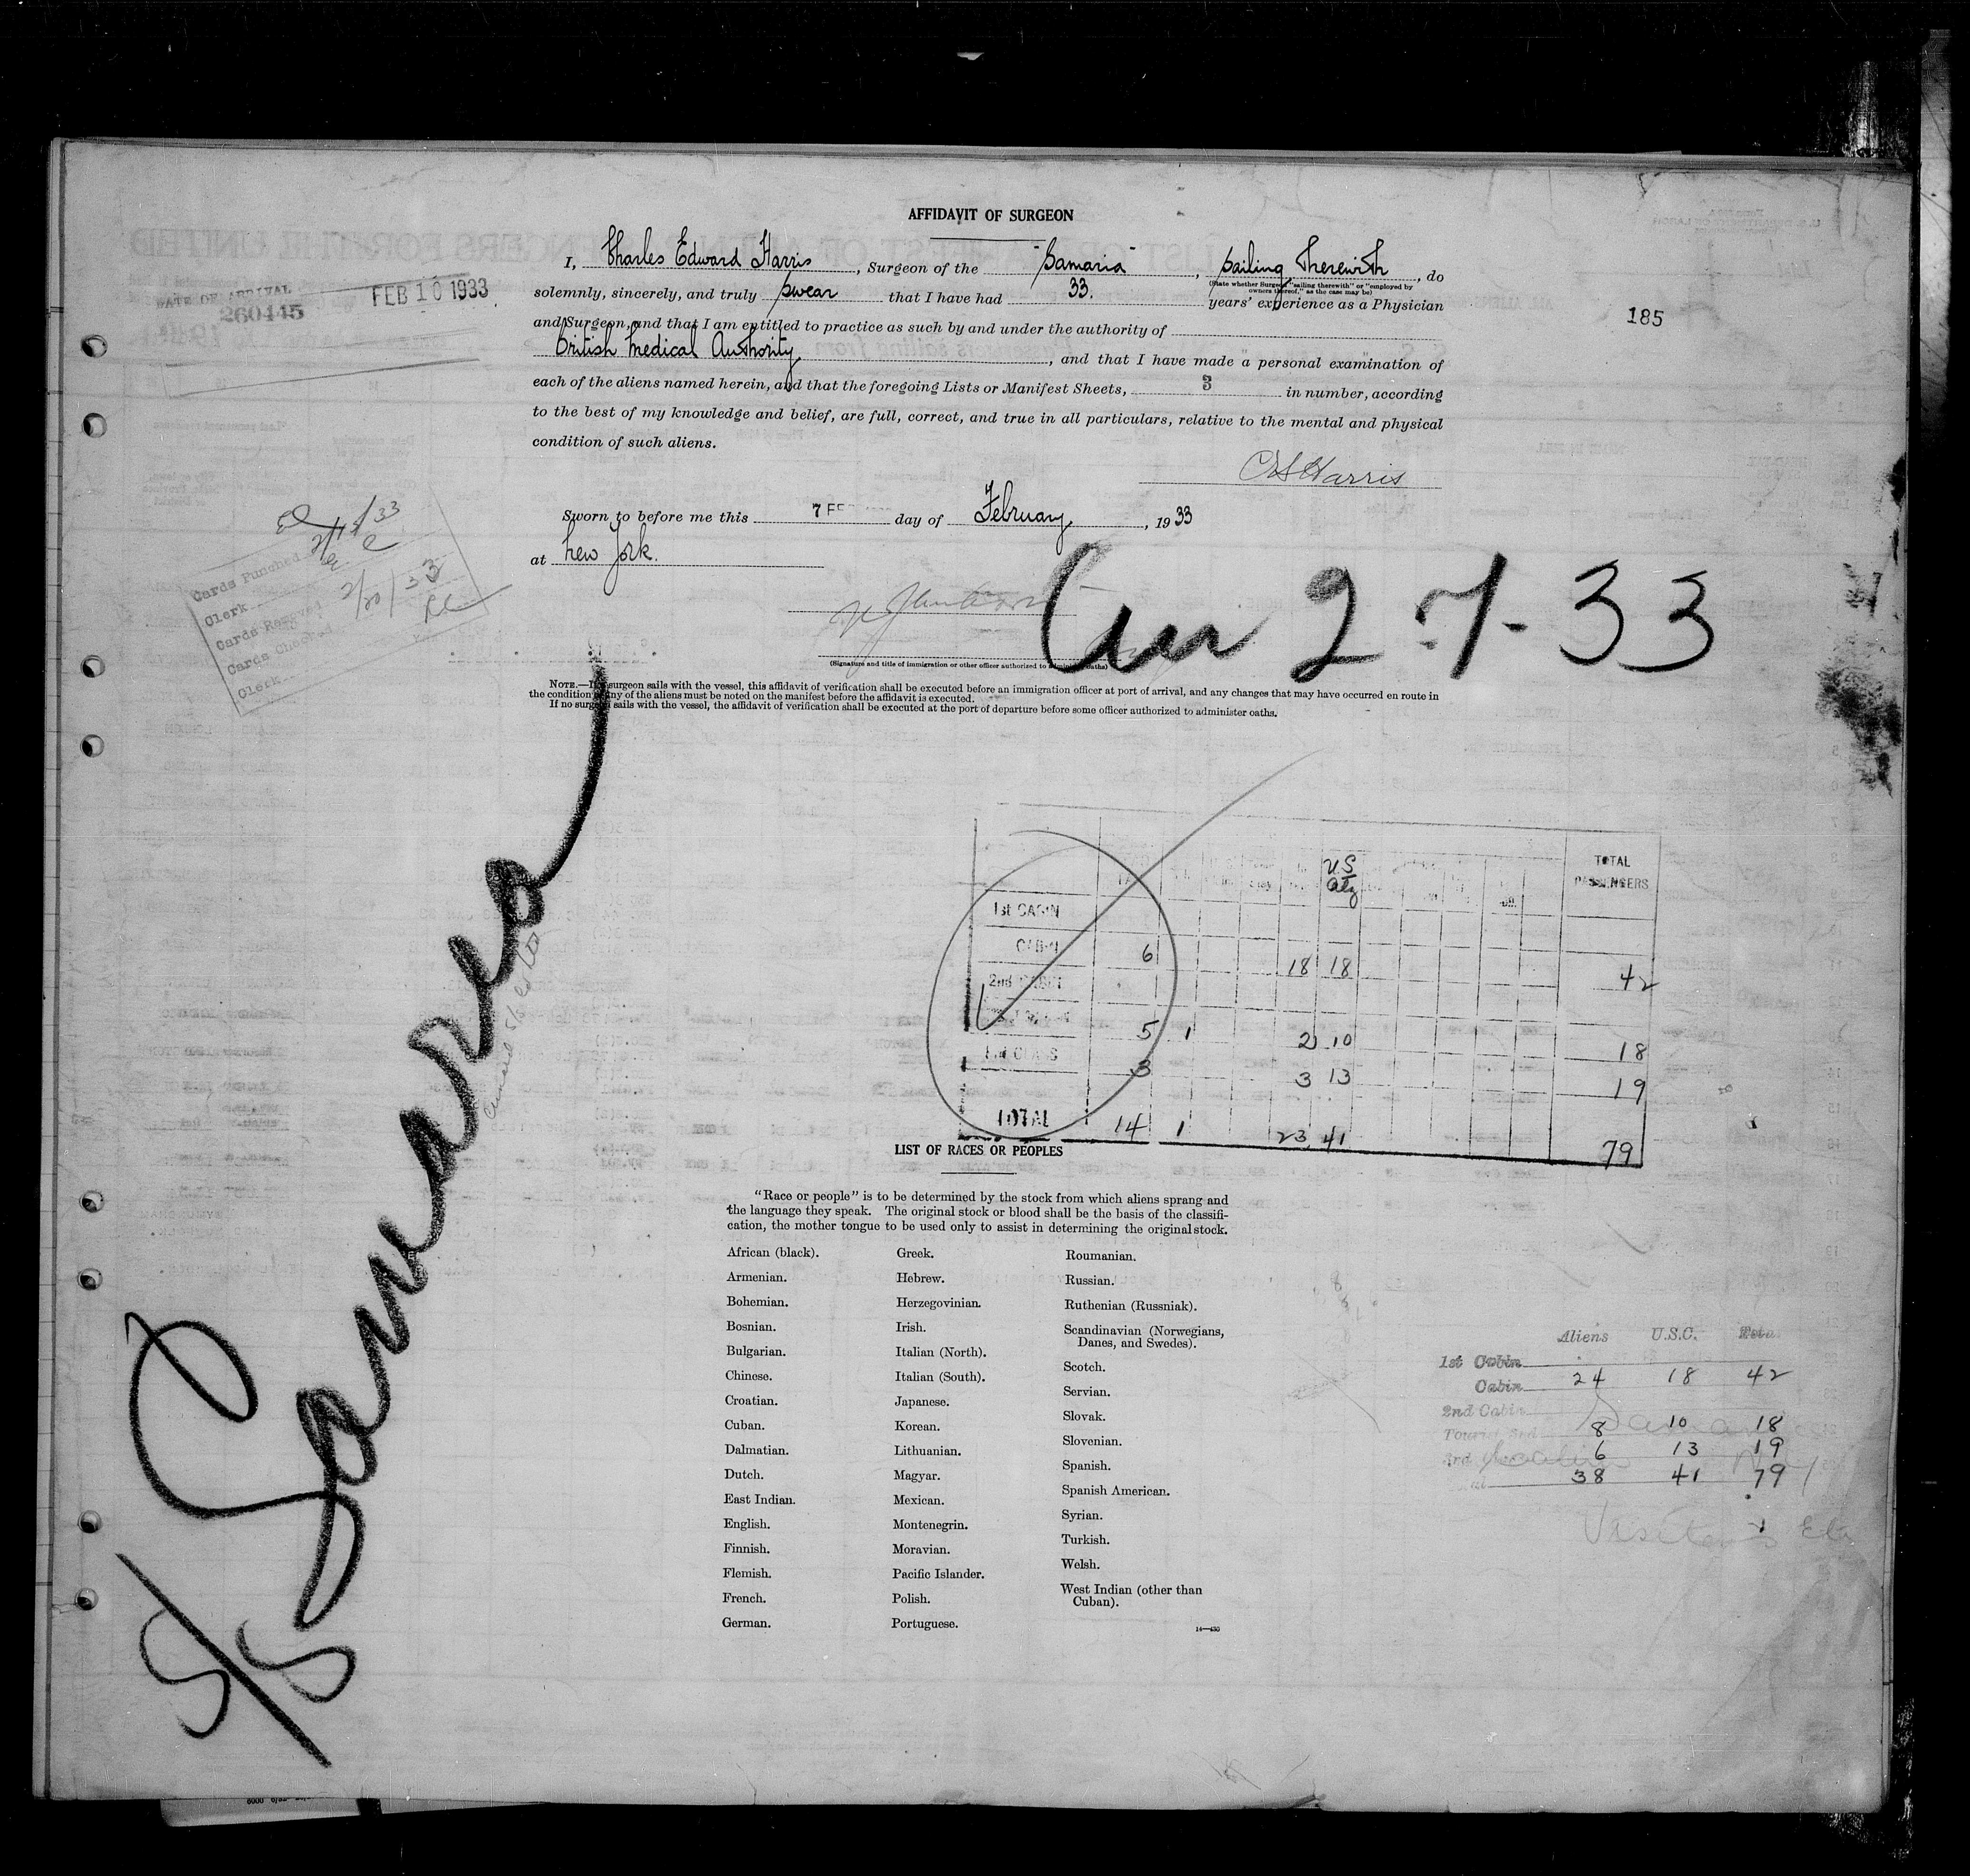 AFFIDAVIT OF SURGEON
I, Charles Edward Harris, Surgeon of the "Samaria", sailing therewith, do
(State whether Surgeon "sailing therewith" or "employed by owners thereof," as the case may be)
solemnly, sincerely, and truly swear that I have had 33. years' experience as a Physician
and Surgeon, and that I am entitled to practice as such by and under the authority of
British Medical Authority, and that I have made a personal examination of
each of the aliens named herein, and that the foregoing Lists or Manifest Sheets, 3 in number, according
to the best of my knowledge and belief, are full, correct, and true in all particulars, relative to the mental and physical
condition of such aliens.
DATE OF ARRIVAL
260445
FEB 10 1933
185
Harris
Sworn to before me this 7 day of February, 1933
at New York.
Cards Punched
Clerk
Cards Checked
Clerk
2/20/33
2-7-33
(Signature and title of immigration or other officer authorized to administer oaths)
NOTE.—If a surgeon sails with the vessel, this affidavit of verification shall be executed before an immigration officer at port of arrival, and any changes that may have occurred en route in
the condition of any of the aliens must be noted on the manifest before the affidavit is executed.
If no surgeon sails with the vessel, the affidavit of verification shall be executed at the port of departure before some officer authorized to administer oaths.
S/S Samaria
U.S TOTAL PASSENGERS
1st CABIN
CABIN 6 18 18 42
2nd CABIN
5 1 2 10 18
3rd CLASS 3 3 13 19
TOTAL 14 1 23 41 79
LIST OF RACES OR PEOPLES
"Race or people" is to be determined by the stock from which aliens sprang and
the language they speak. The original stock or blood shall be the basis of the classifi-
cation, the mother tongue to be used only to assist in determining the original stock.
African (black).
Armenian.
Bohemian.
Bosnian.
Bulgarian.
Chinese.
Croatian.
Cuban.
Dalmatian.
Dutch.
East Indian.
English.
Finnish.
Flemish.
French.
German.
Greek.
Hebrew.
Herzegovinian.
Irish.
Italian (North).
Italian (South).
Japanese.
Korean.
Lithuanian.
Magyar.
Mexican.
Montenegrin.
Moravian.
Pacific Islander.
Polish.
Portuguese.
Roumanian.
Russian.
Ruthenian (Russniak).
Scandinavian (Norwegians,
Danes, and Swedes).
Scotch.
Servian.
Slovak.
Slovenian.
Spanish.
Spanish American.
Syrian.
Turkish.
Welsh.
West Indian (other than
Cuban).
14—430
Aliens U.S.C. Total
1st Cabin
Cabin 24 18 42
2nd Cabin
Tourist 8 10 18
3rd 6 13 19
38 41 79